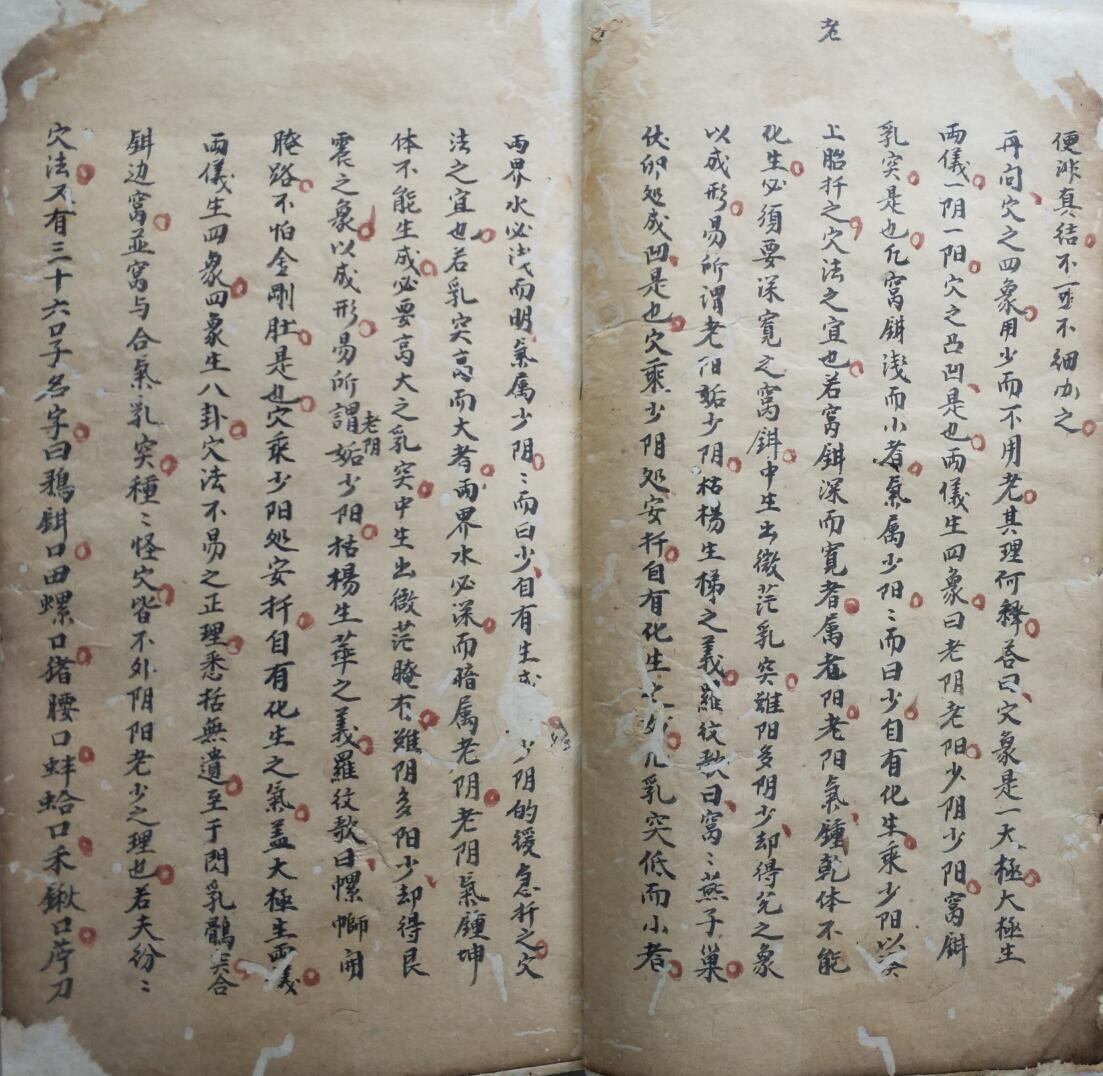 老
便非真结不可不细办之
再问穴之四象用少而不用老其理何释答曰穴象是一大极大极生
两儀一阴一阳穴之凸凹是也两儀生四象曰老阴老阳少阴少阳窩鉺
乳突是也凡窩鉺浅而小者氣属少阳〻而曰少自有化生乘少阳以
上胎扦之穴法之宜也若窩鉺深而寬者属老阳老阳氣鍾乾体不能
化生必须要深寬之窩鉺中生出微茫乳突雖阳多阴少却得兑之象
以成形易所谓老阳姤少阴枯楊生梯之義羅纹歌曰窩〻燕子巢
伏卵处成凹是也穴乘少阴处安扦自有化生 凡乳突低而小者
两界水必浅而明氣属少阴〻而曰少自有生 少阴的缓急扦之穴
法之宜也若乳突高而大者两界水必深而暗属老阴老阴氣鍾坤
体不能生成必要高大之乳突中生出微茫腌 雖阴多阳少却得艮
震之象以成形易所謂老阴姤少阳枯楊生華之義羅纹歌曰 開
腌路不怕金剛肚是也穴乘少阳处安扦自有化生之氣盖大極生两義
两儀生四象四象生八卦穴法不易之正理悉括無遺至于閃乳鶻突合
鉺边窩並窩与合氣乳突種〻怪穴皆不外阴阳老少之理也若夫纷〻
穴法又有三十六口子名字曰鵝鉺口田螺口猪腰口蚌蛤口禾鍬口 刀